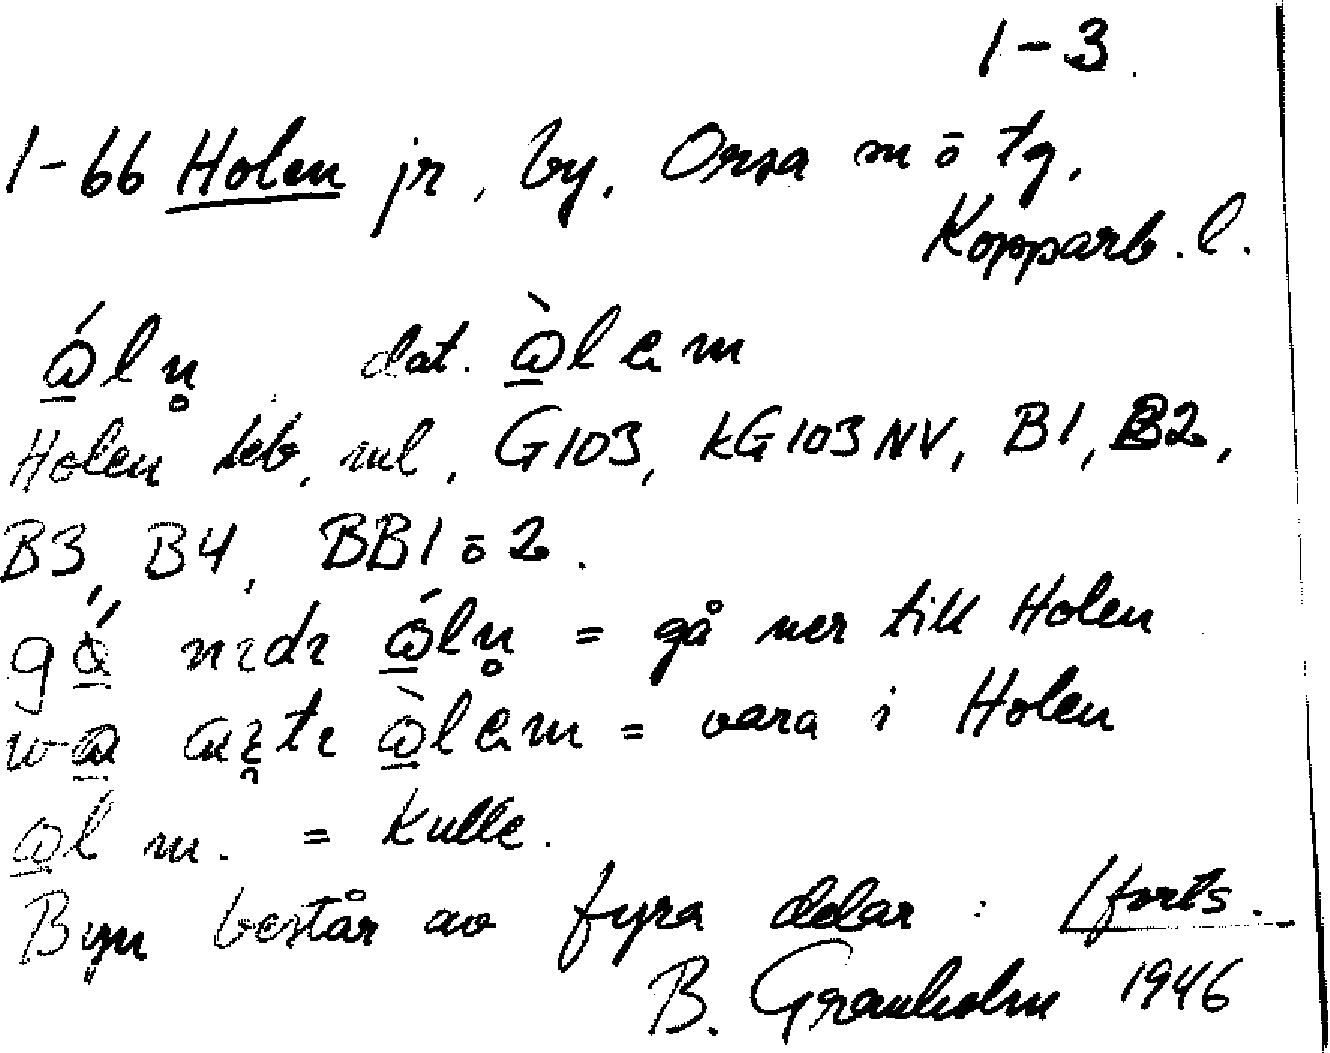 1-3.
1-66 Holen jr, by, Orsa m ō tg,
Kopparb. l.
dat.
Holen keb, rul, G103, kG103NV, B1, B2,
B3, B4, BB1 ō 2.
= gå ner till Holen
= vara i Holen
m. = Kulle.
Byn består av fyra delar : /forts.
B. Granholm 1946